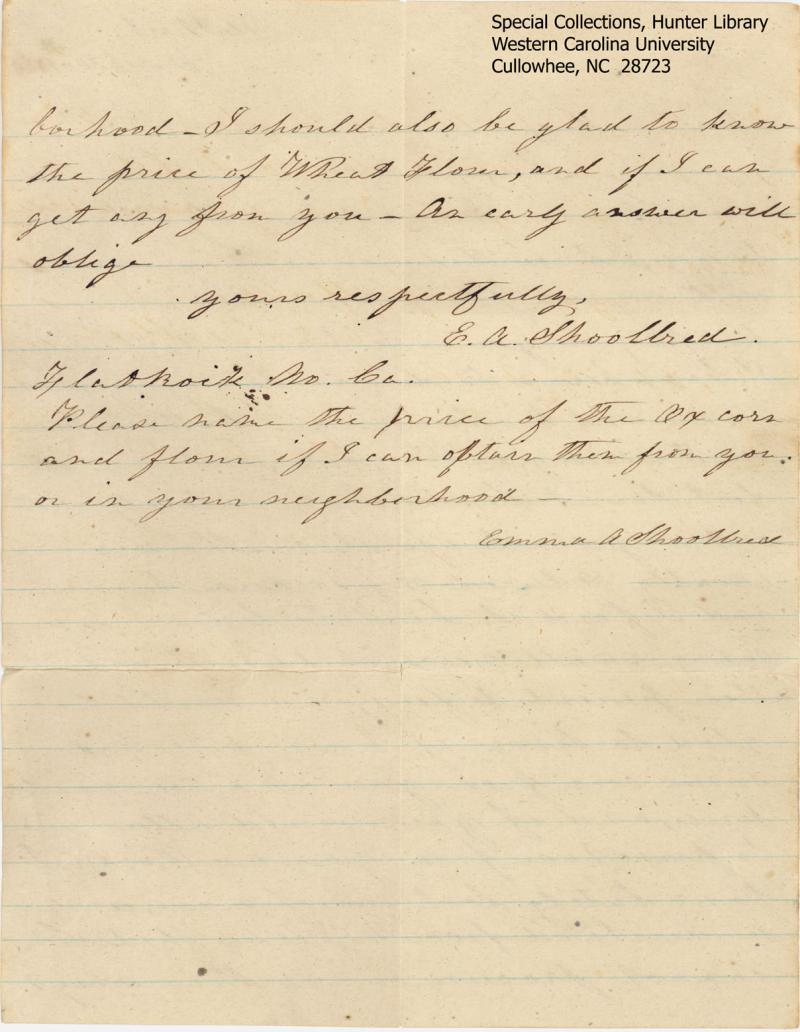 Special Collections, Hunter Library
Western Carolina University
Cullowhee, NC 28723
borhood - I should also be glad to know
the price of Wheat Flour, and if I can
get any from you - An early answer will
oblige
yours respectfully,
E. A. Shoolbred.
Flat Rock No. Ca.
Please name the price of the Ox corn
and flour if I can obtain them from you.
or in your neighborhood -
Emma A Shoolbred